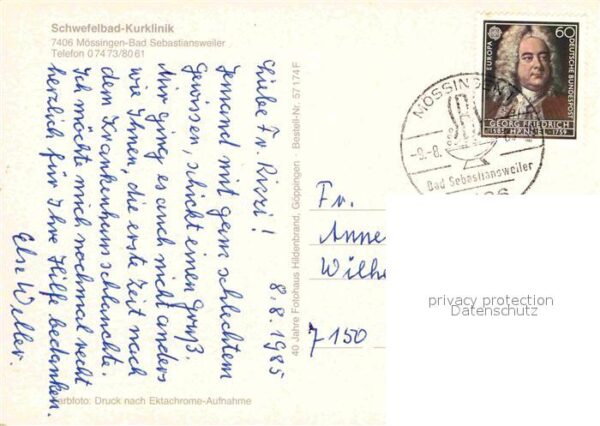 Schwefelbad-Kurklinik
7406 Mössingen-Bad Sebastiansweiler
Telefon 07473/8061
8.8.1985
Liebe Fr. Rizzi!
Jemand mit ganz schlechtem
Gewissen, schickt einen Gruß.
Mir ging es auch nicht anders
wie Ihnen, die erste Zeit nach
dem Krankenhaus schlauchte.
Ich möchte mich nochmal recht
herzlich für Ihre Hilfe bedanken.
Else Willer.
Farbfoto: Druck nach Ektachrome-Aufnahme
40 Jahre Fotohaus Hildenbrand, Göppingen · Bestell-Nr. 57174F
EUROPA
60
DEUTSCHE BUNDESPOST
GEORG FRIEDRICH
1685 HÄNDEL 1759
MÖSSINGEN
-9.-8.
Bad Sebastiansweiler
Fr.
Anne
Wilhe
7150
privacy protection
Datenschutz